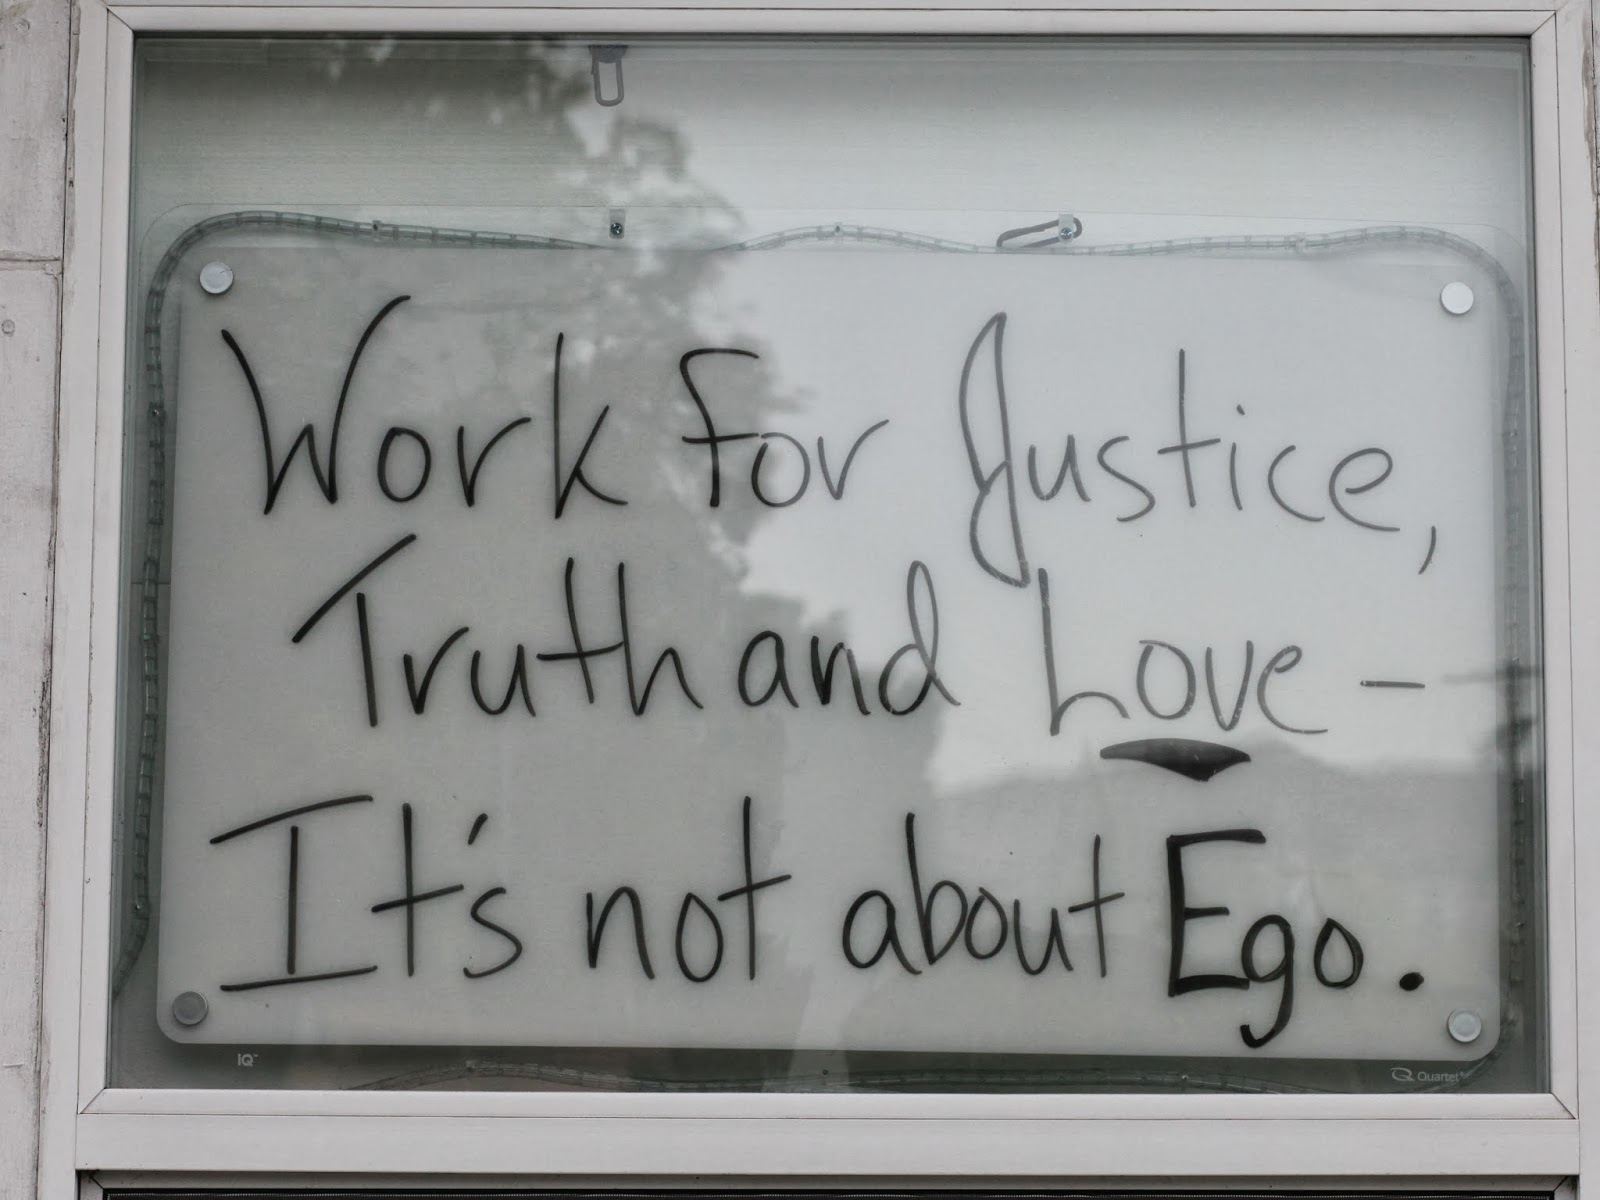 Work for Justice,
Truth and Love -
It's not about Ego.
IQ™
Quartet